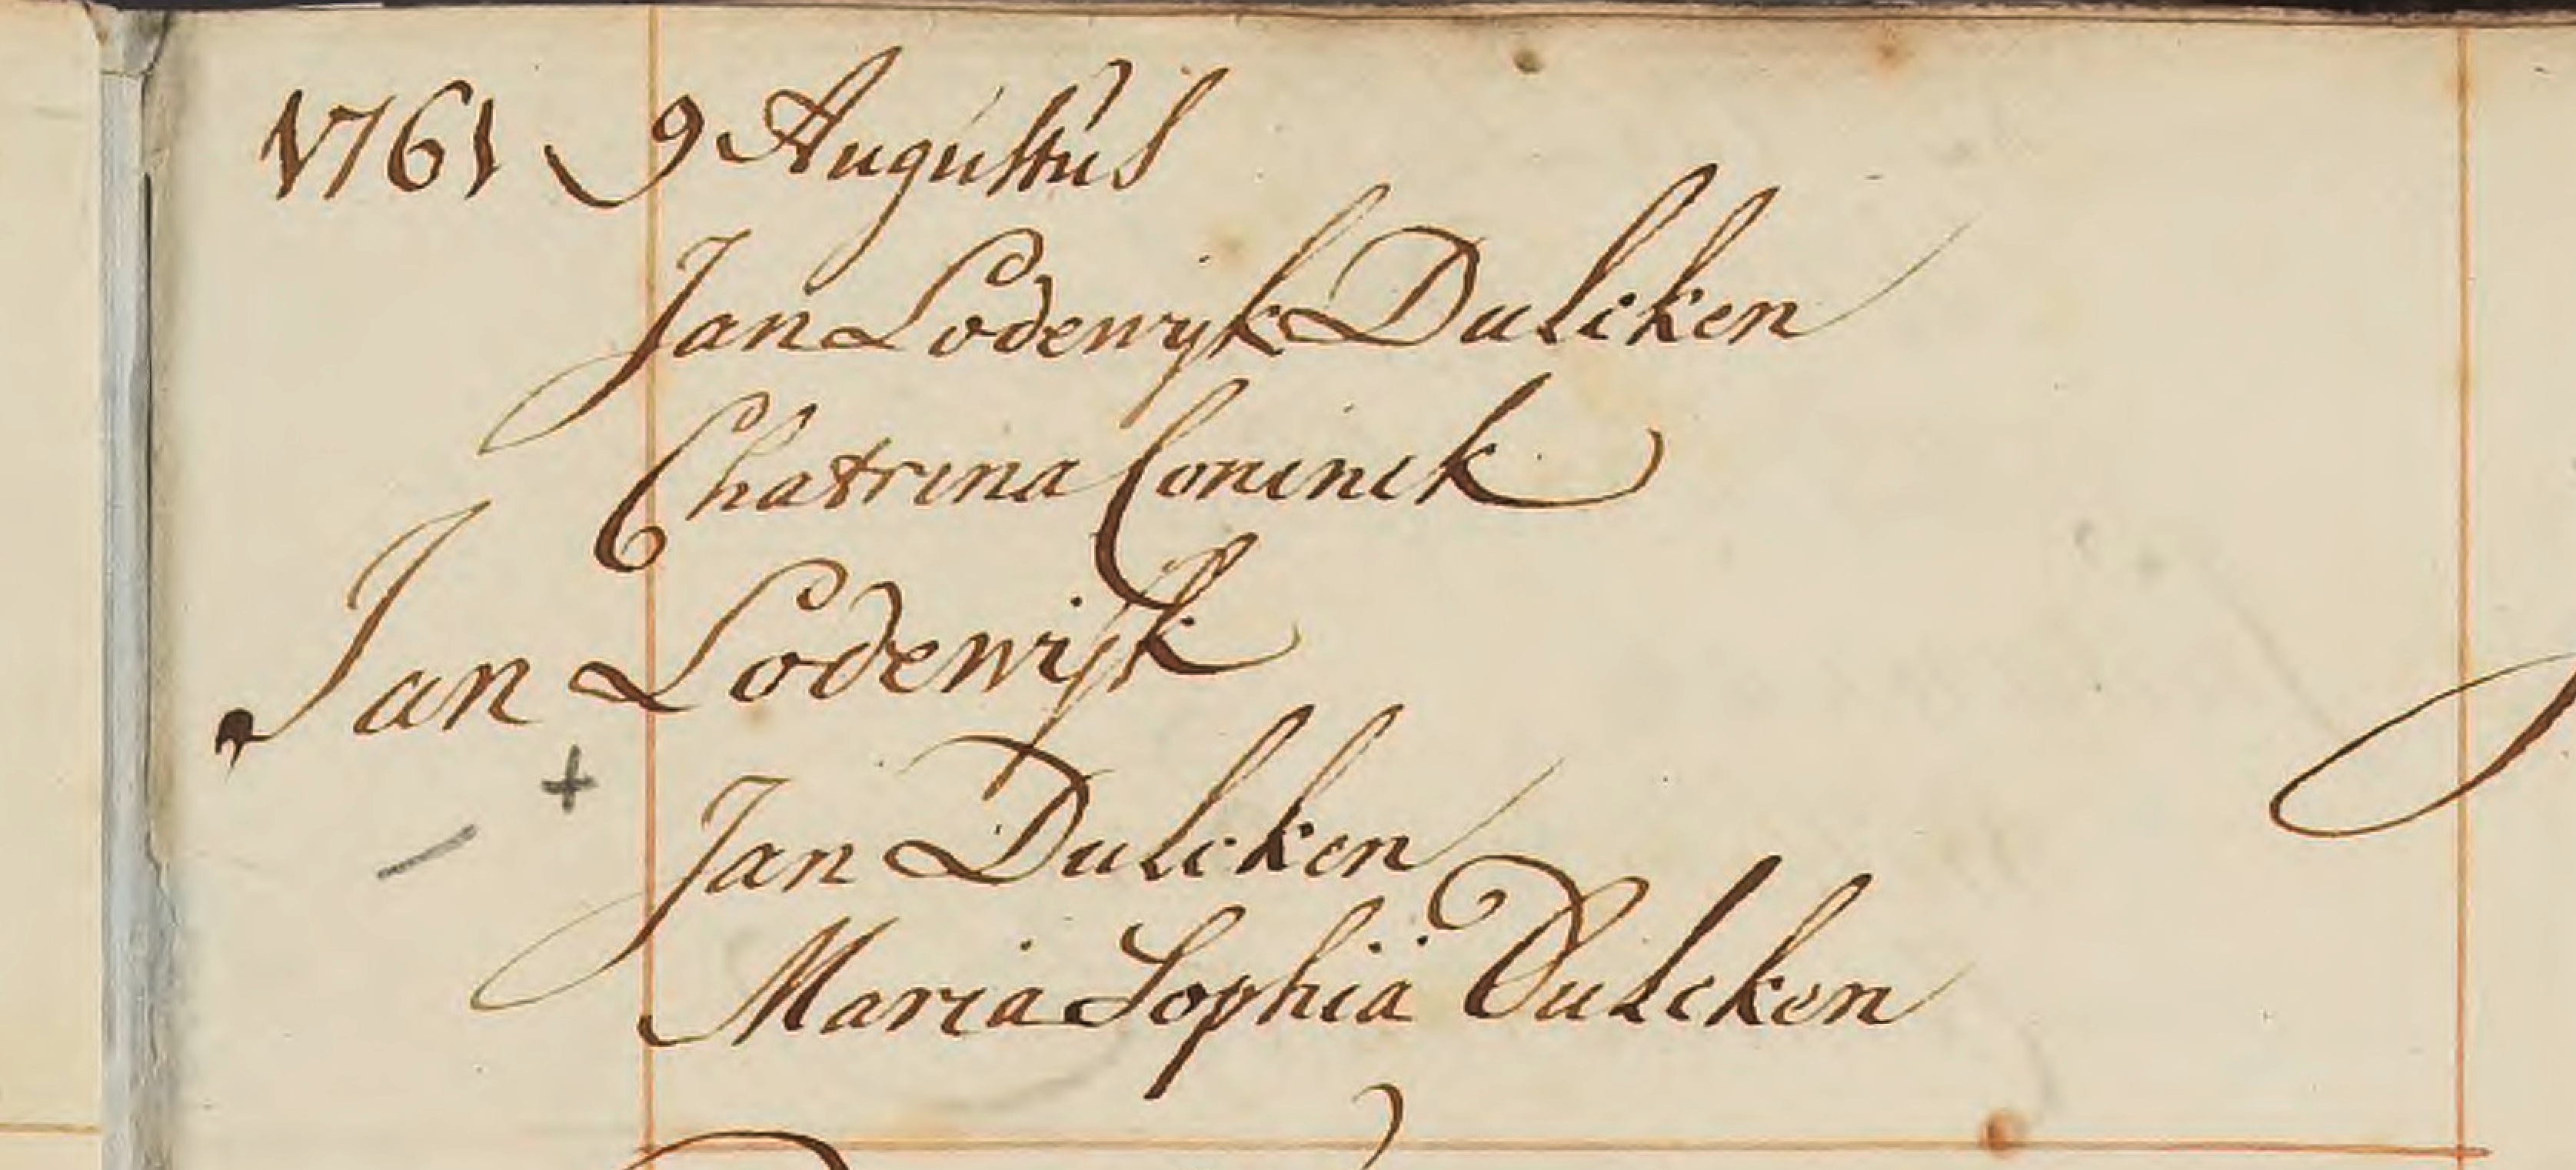 1761 9 Augustus
Jan Lodewyk Dulcken
Chatrina Coninck
Jan Lodewijk
+
Jan Dulcken
Maria Sophia Dulcken